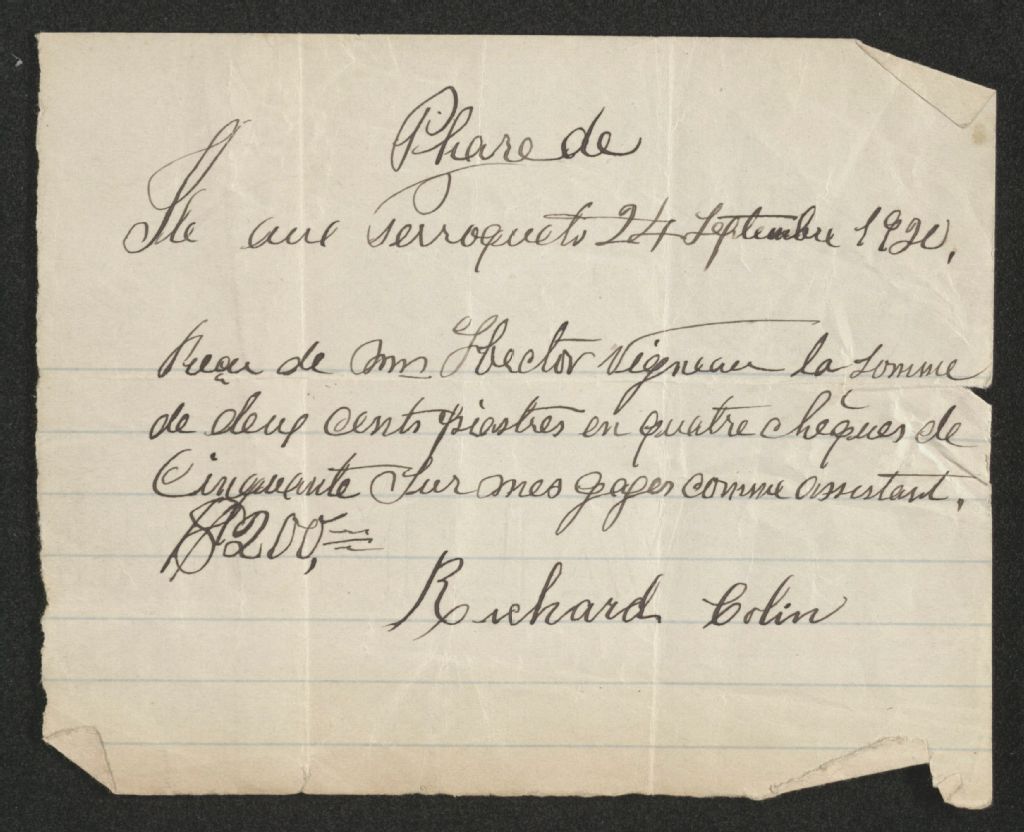 Phare de
Ile aux Perroquets 24 Septembre 1920,
Reçu de Mr Hector Vigneau la somme
de deux cents piastres en quatre chèques de
Cinquante sur mes gages comme assistant,
$200,=
Richard Colin